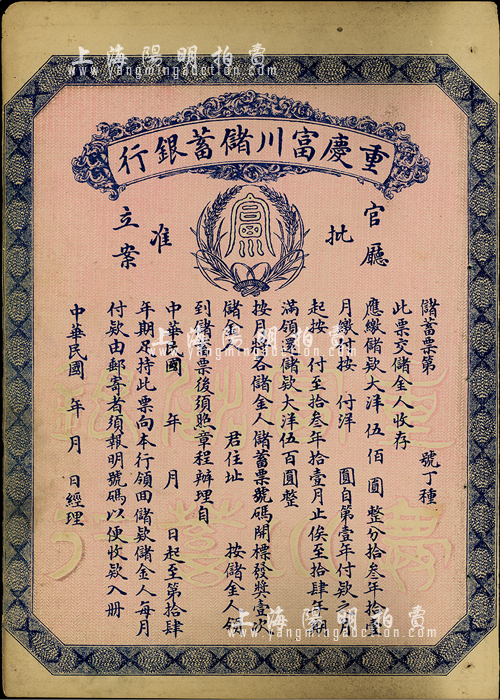 上海陽明拍賣
www.yangmingauction.com
重慶富川儲蓄銀行
官廳
批
准
立案
富川
儲蓄票第　號丁種
此票交儲金人收存
應繳儲款大洋伍佰圓整分拾叁年拾壹
月繳付按　付洋　圓自第壹年付款之月
起按　付至拾叁年拾壹月止俟至拾肆年期
滿領還儲款大洋伍百圓整
按月將各儲金人儲蓄票號碼開標發獎壹次
儲金人　君住址　按儲金人領
到儲蓄票後須照章程辦理自
中華民國　年　月　日起至第拾肆
年期足持此票向本行領回儲款儲金人每月
付款由郵寄者須報明號碼以便收款入册
中華民國　年　月　日經理
上海陽明拍賣
www.yangmingauction.com
上海陽明拍賣
www.yangmingauction.com